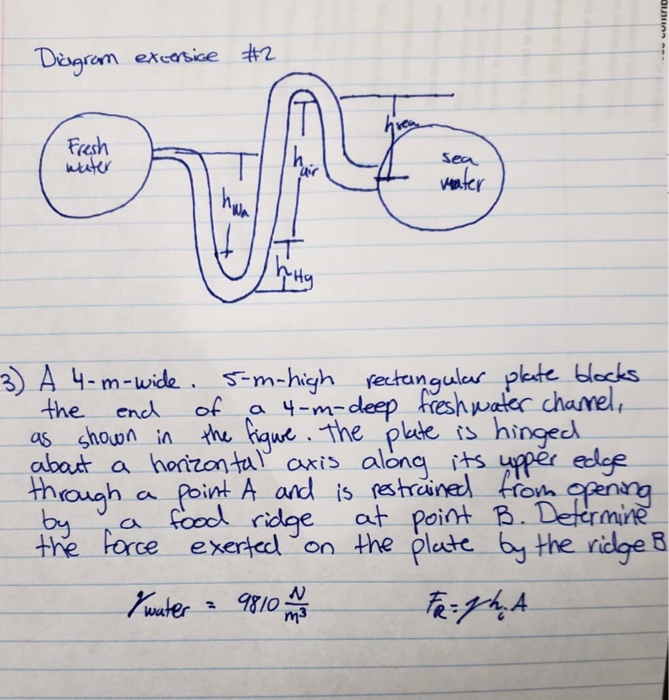 Diagram excersice #2
Fresh
water
hwa
hair
hHg
hsea
sea
water
3) A 4-m-wide. 5-m-high rectangular plate blocks
the end of a 4-m-deep freshwater channel,
as shown in the figure. The plate is hinged
about a horizontal axis along its upper edge
through a point A and is restrained from opening
by a food ridge at point B. Determine
the force exerted on the plate by the ridge B
γwater = 9810 N/m³
FR = γhcA